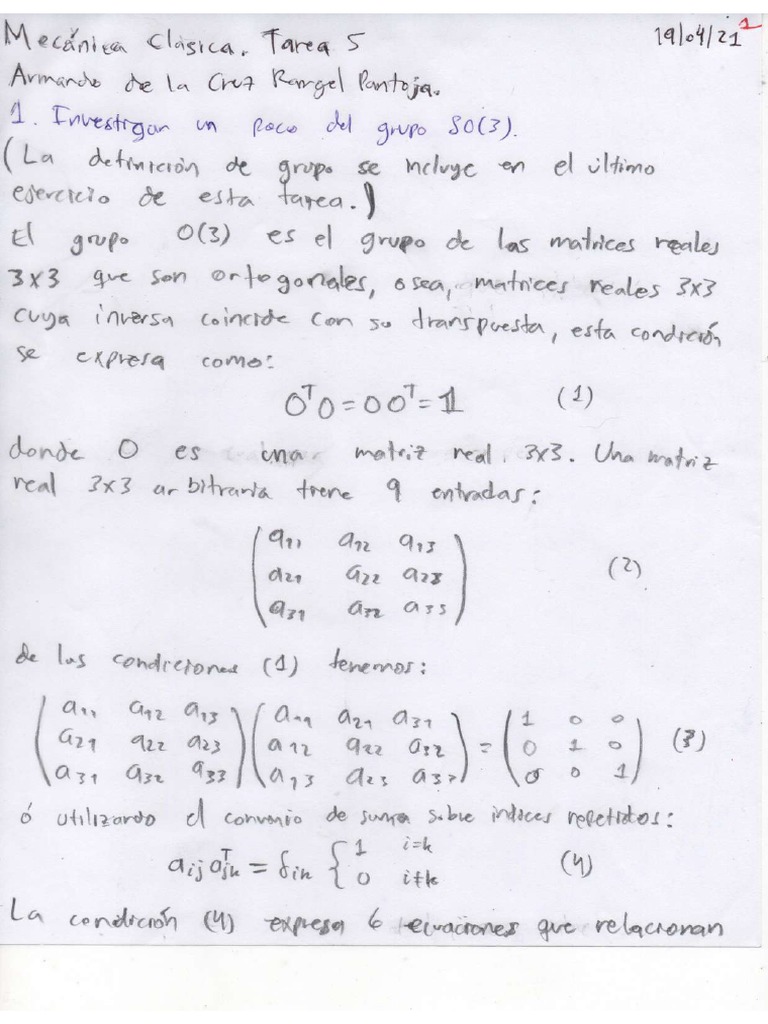 Mecánica Clásica. Tarea 5 19/04/21 1
Armando de la Cruz Rangel Pantoja.
1. Investigar un poco del grupo SO(3).
(La definición de grupo se incluye en el último
ejercicio de esta tarea.)
El grupo O(3) es el grupo de las matrices reales
3x3 que son ortogonales, osea, matrices reales 3x3
cuya inversa coincide con su transpuesta, esta condición
se expresa como:
OᵀO = OOᵀ = 𝟙 (1)
donde O es una matriz real 3x3. Una matriz
real 3x3 arbitraria tiene 9 entradas:
a₁₁ a₁₂ a₁₃
a₂₁ a₂₂ a₂₃ (2)
a₃₁ a₃₂ a₃₃
de las condiciones (1) tenemos:
a₁₁ a₁₂ a₁₃ a₁₁ a₂₁ a₃₁ 1 0 0
a₂₁ a₂₂ a₂₃ a₁₂ a₂₂ a₃₂ = 0 1 0 (3)
a₃₁ a₃₂ a₃₃ a₁₃ a₂₃ a₃₃ 0 0 1
ó utilizando el convenio de suma sobre indices repetidos:
aᵢⱼaᵀⱼₖ = δᵢₖ { 1 i=k
0 i≠k (4)
La condición (4) expresa 6 ecuaciones que relacionan